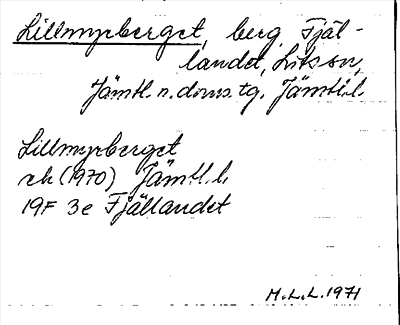 Lillmyrberget, berg, Fjäl-
landet, Lits sn,
Jämtl. n. doms. tg. Jämtl. l.
Lillmyrberget
ek (1970) Jämtl. l.
19F 3e Fjällandet
M.L.L. 1971